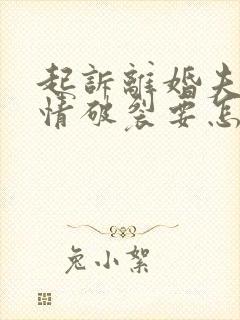 起訴離婚夫
情破裂要怎
兔小絮